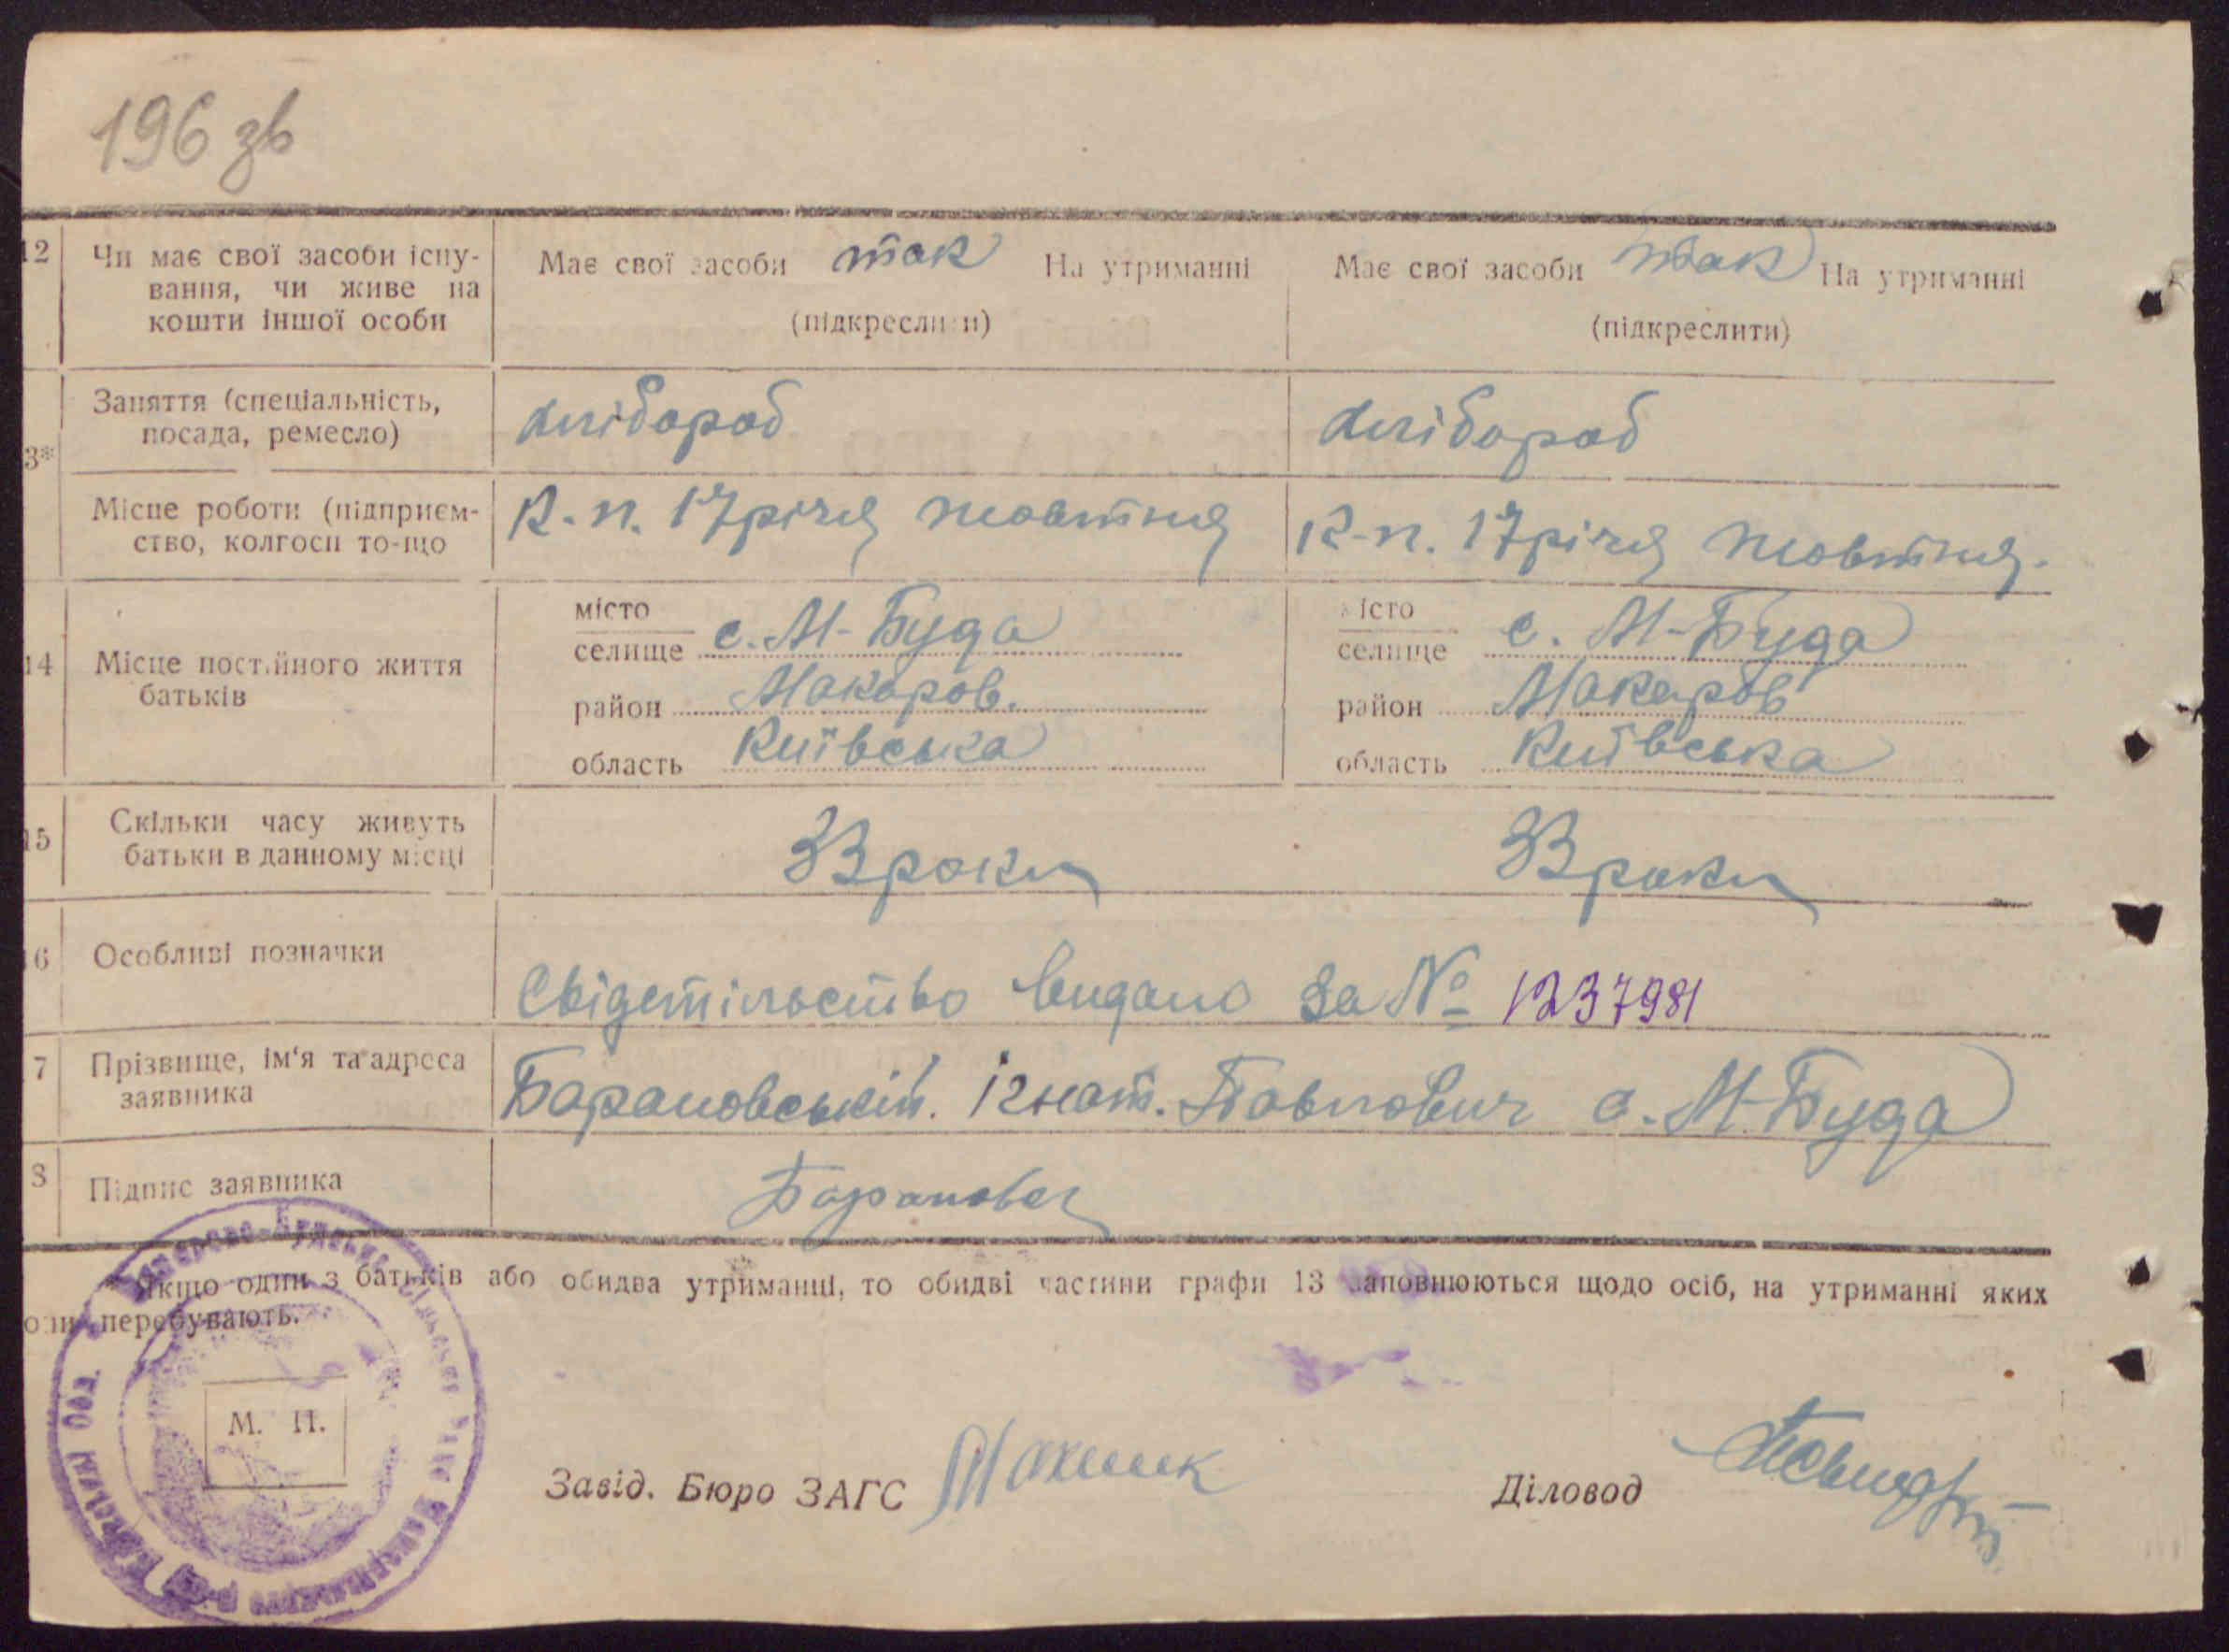 196 зв
12 Чи має свої засоби існу-
вання, чи живе на
кошти іншої особи
Має свої засоби так На утриманні
(підкреслити)
Має свої засоби так На утриманні
(підкреслити)
3* Заняття (спеціальність,
посада, ремесло)
хлібороб
хлібороб
Місце роботи (підприєм-
ство, колгосп то-що
К-п. 17річя жовтня
К-п. 17річя жовтня.
14 Місце постійного життя
батьків
місто
селище с. М-Буда
район Макаров.
область Київська
місто
селище с. М-Буда
район Макаров
область Київська
15 Скільки часу живуть
батьки в данному місці
33 роки
33 роки
6 Особливі позначки
Свідетільство видано за № 1237981
7 Прізвище, ім'я та адреса
заявника
Барановській. Ігнат. Павлович с. М-Буда
8 Підпис заявника
Барановськ
Якщо один з батьків або обидва утриманці, то обидві частини графи 13 заповнюються щодо осіб, на утриманні яких
вони перебувають.
М. П.
Завід. Бюро ЗАГС
Діловод